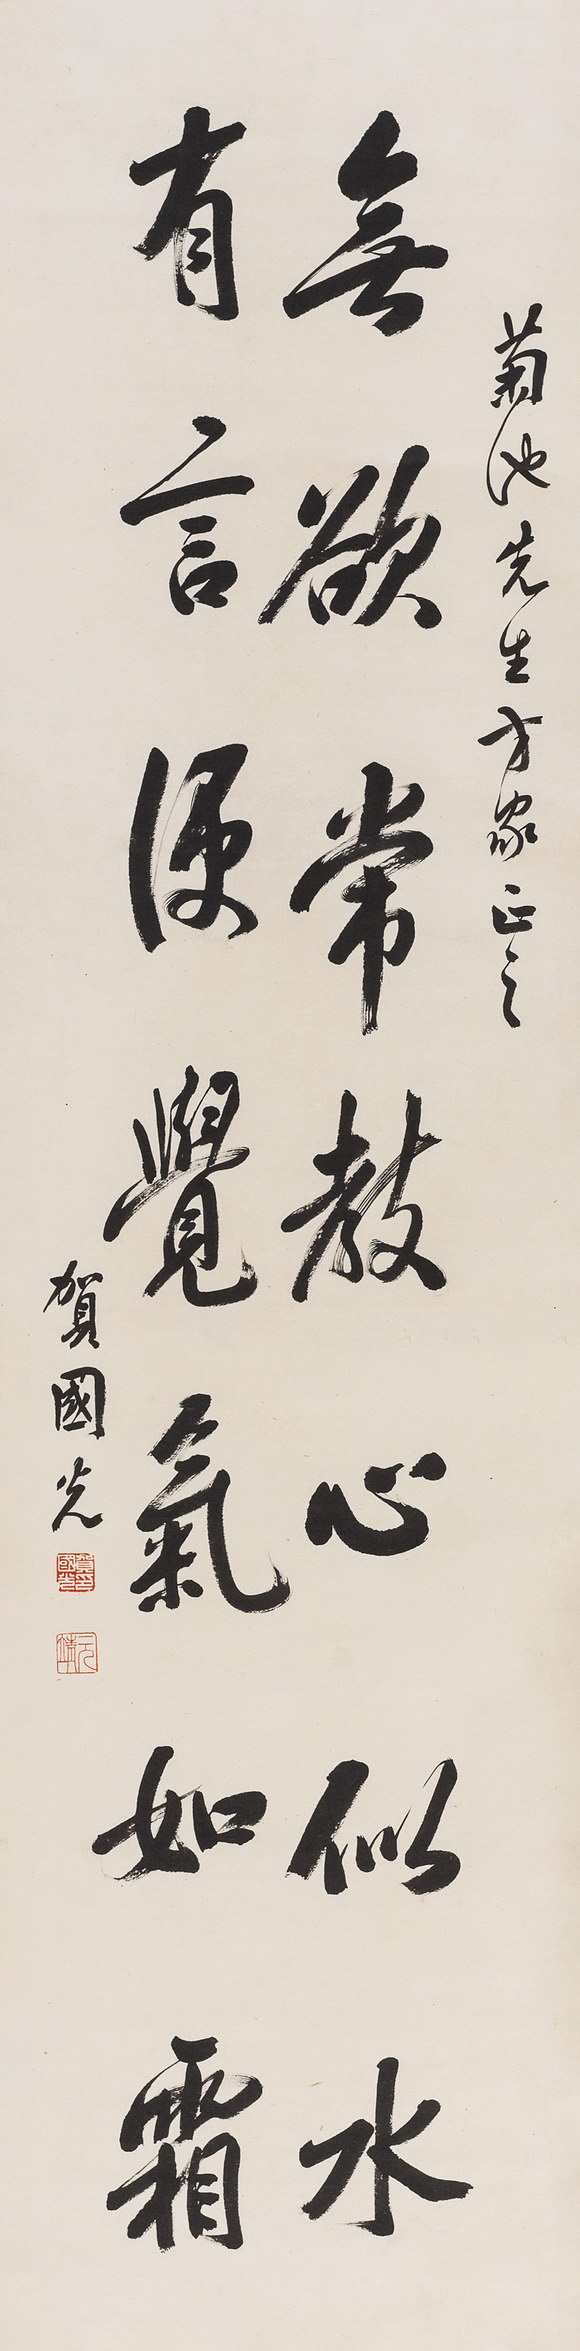 菊池先生方家正之
無欲常教心似水
有言便覺氣如霜
賀國光